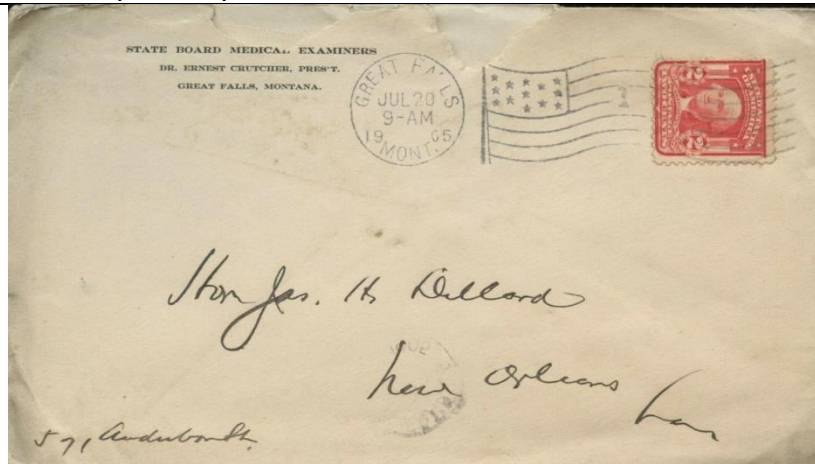 STATE BOARD MEDICAL EXAMINERS
DR. ERNEST CRUTCHER, PRES'T.
GREAT FALLS, MONTANA.
GREAT FALLS
JUL 20
9-AM
1905
MONT.
1
2 2
Hon Jas. H Dillard
New Orleans
La
571 Audubon St.